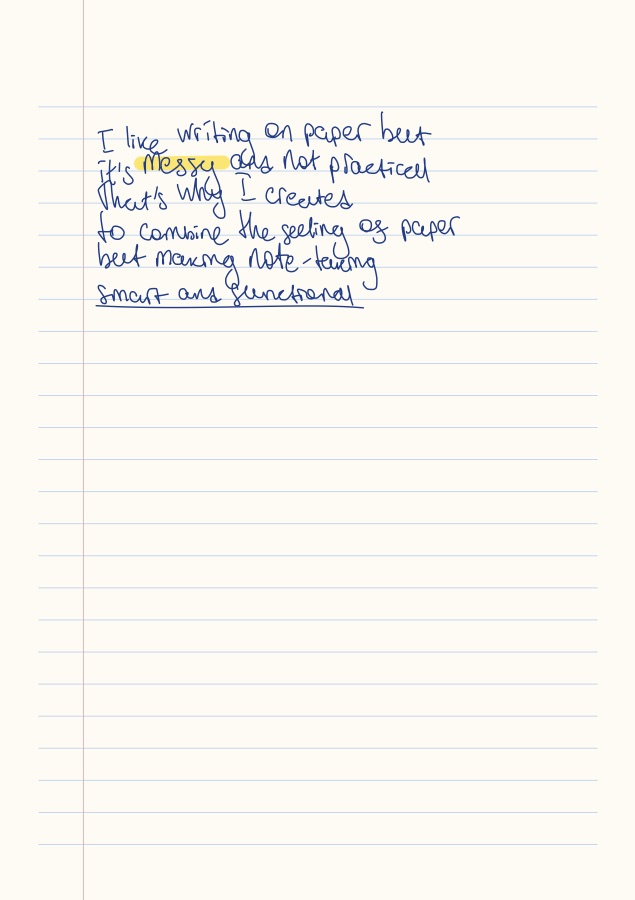 I like writing on paper but
it's messy and not practical
that's why I created
to combine the feeling of paper
but making note-taking
smart and functional